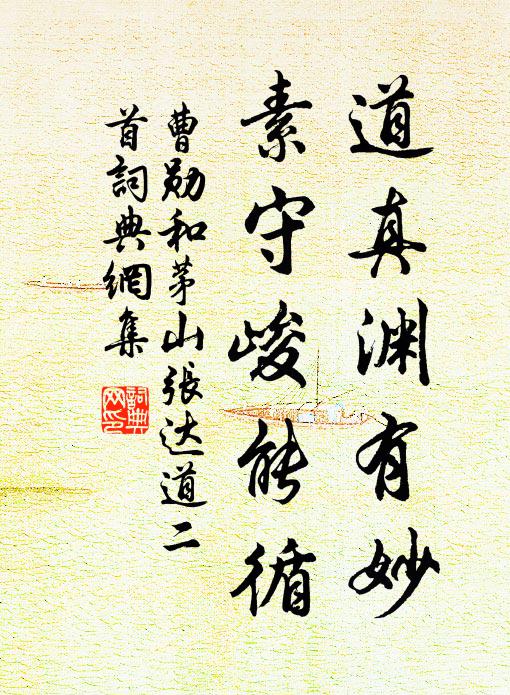 道真渊有妙
素守峻能循
曹勋和茅山张达道二
首詞典網集
詞典網印